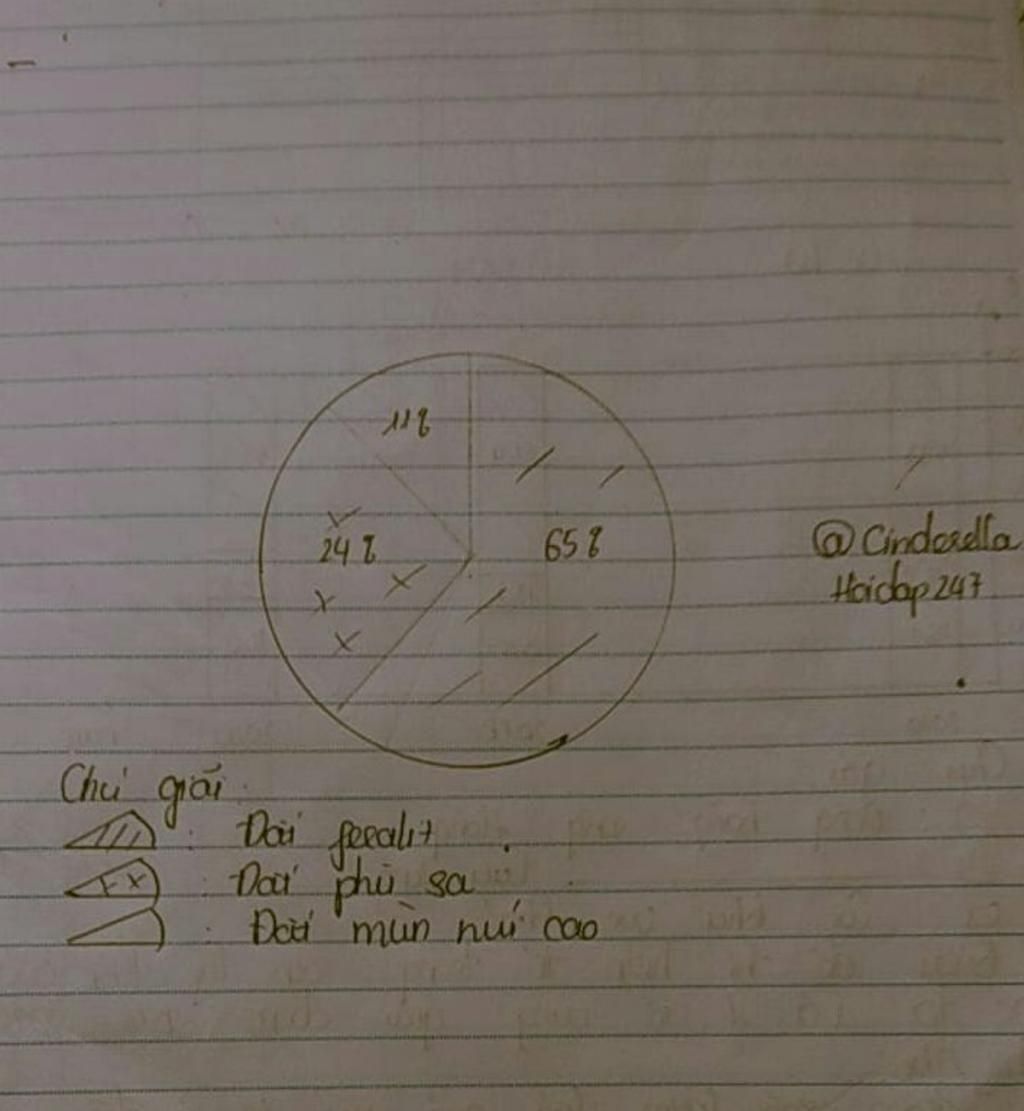 11%
24%
65%
@Cinderella
Hoidap247
Chú giải
: Đất feralit
: Đất phù sa
: Đất mùn núi cao